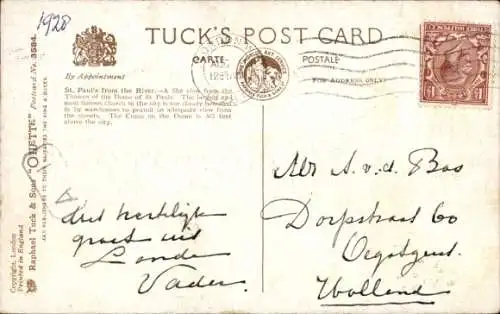 1928
TUCK'S POST CARD
CARTE
POSTALE
By Appointment
FOR ADDRESS ONLY
St. Paul's from the River.—A fine view from the
Thames of the Dome of St. Pauls. The largest and
most famous church in the city is too closely
by warehouses to permit an adequate view from
the streets. The Cross on the Dome is 365 feet
above the city.
Copyright, London
Printed in England
Raphael Tuck & Sons' "OILETTE" Postcard No. 3534.
ART PUBLISHERS TO THEIR MAJESTIES THE KING & QUEEN.
Met hartelijk
groet uit
Londen
Vader
Mr A. v. d. Bas
Dorpstraat 60
Oegstgeest
Holland